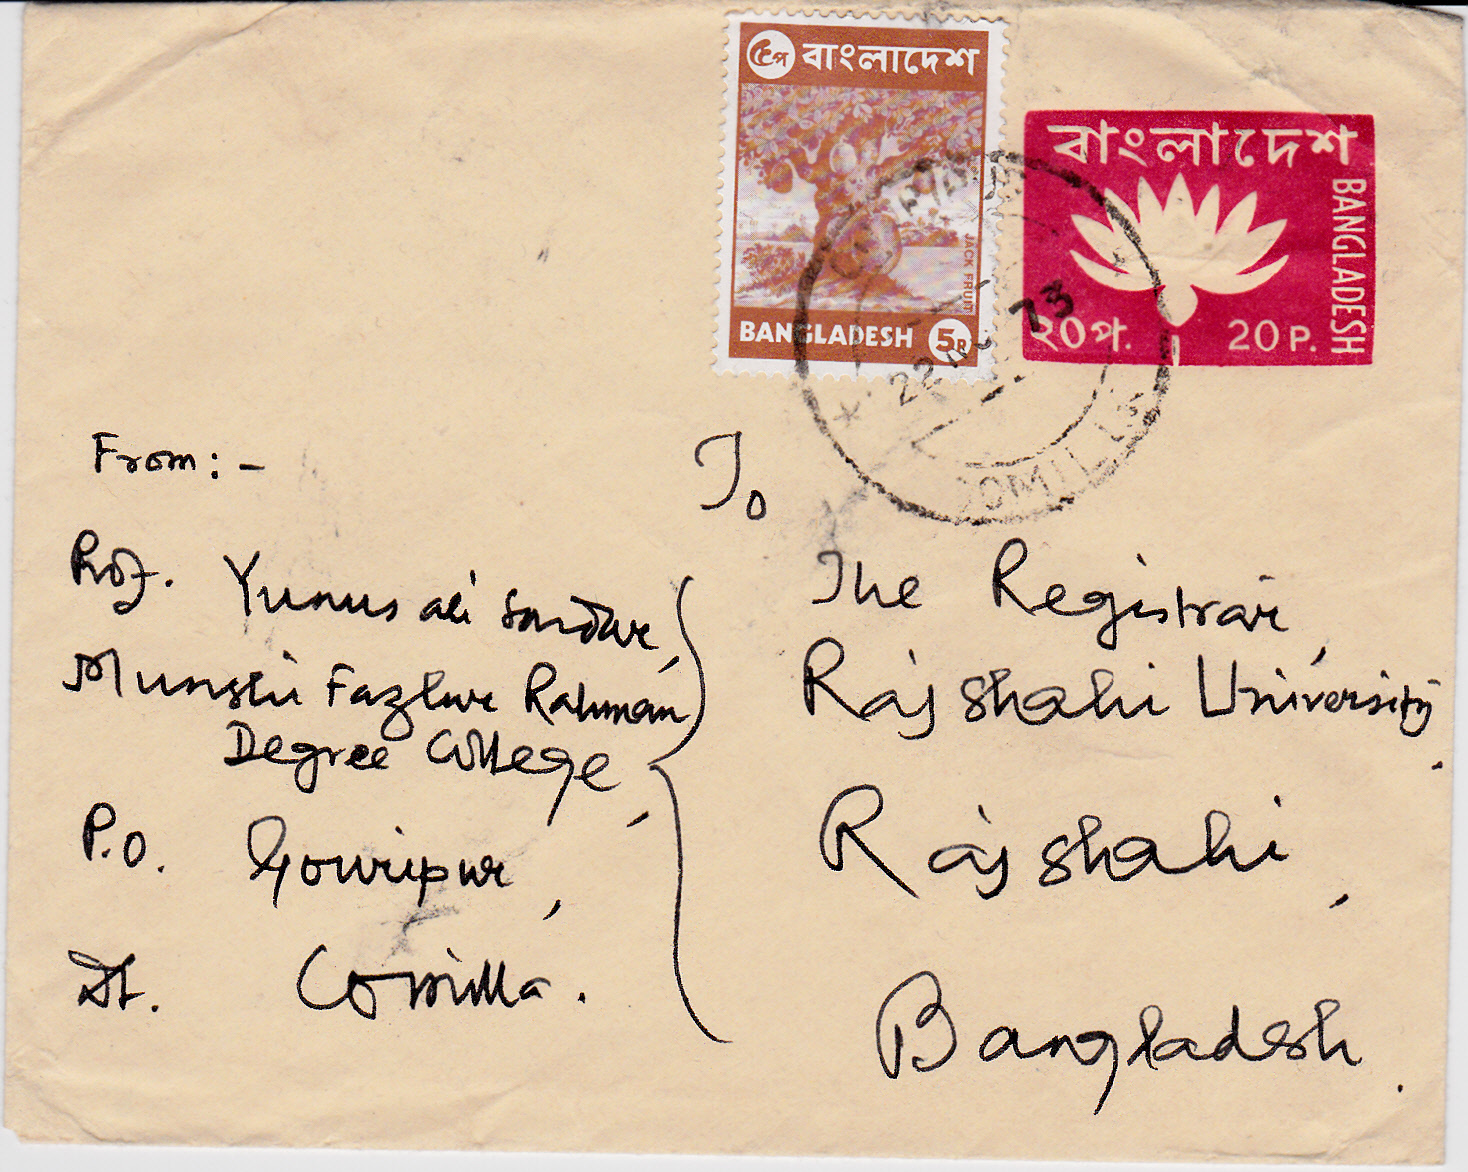 ৫প বাংলাদেশ
JACK FRUIT
BANGLADESH 5P
বাংলাদেশ
BANGLADESH
২০ প. 20 P.
22 73
COMILLA
From:-
Prof. Yunus Ali Sardar,
Munshi Fazlur Rahman
Degree College,
P.O. Gouripur,
Dt. Comilla.
To
The Registrar,
Rajshahi University.
Rajshahi,
Bangladesh.